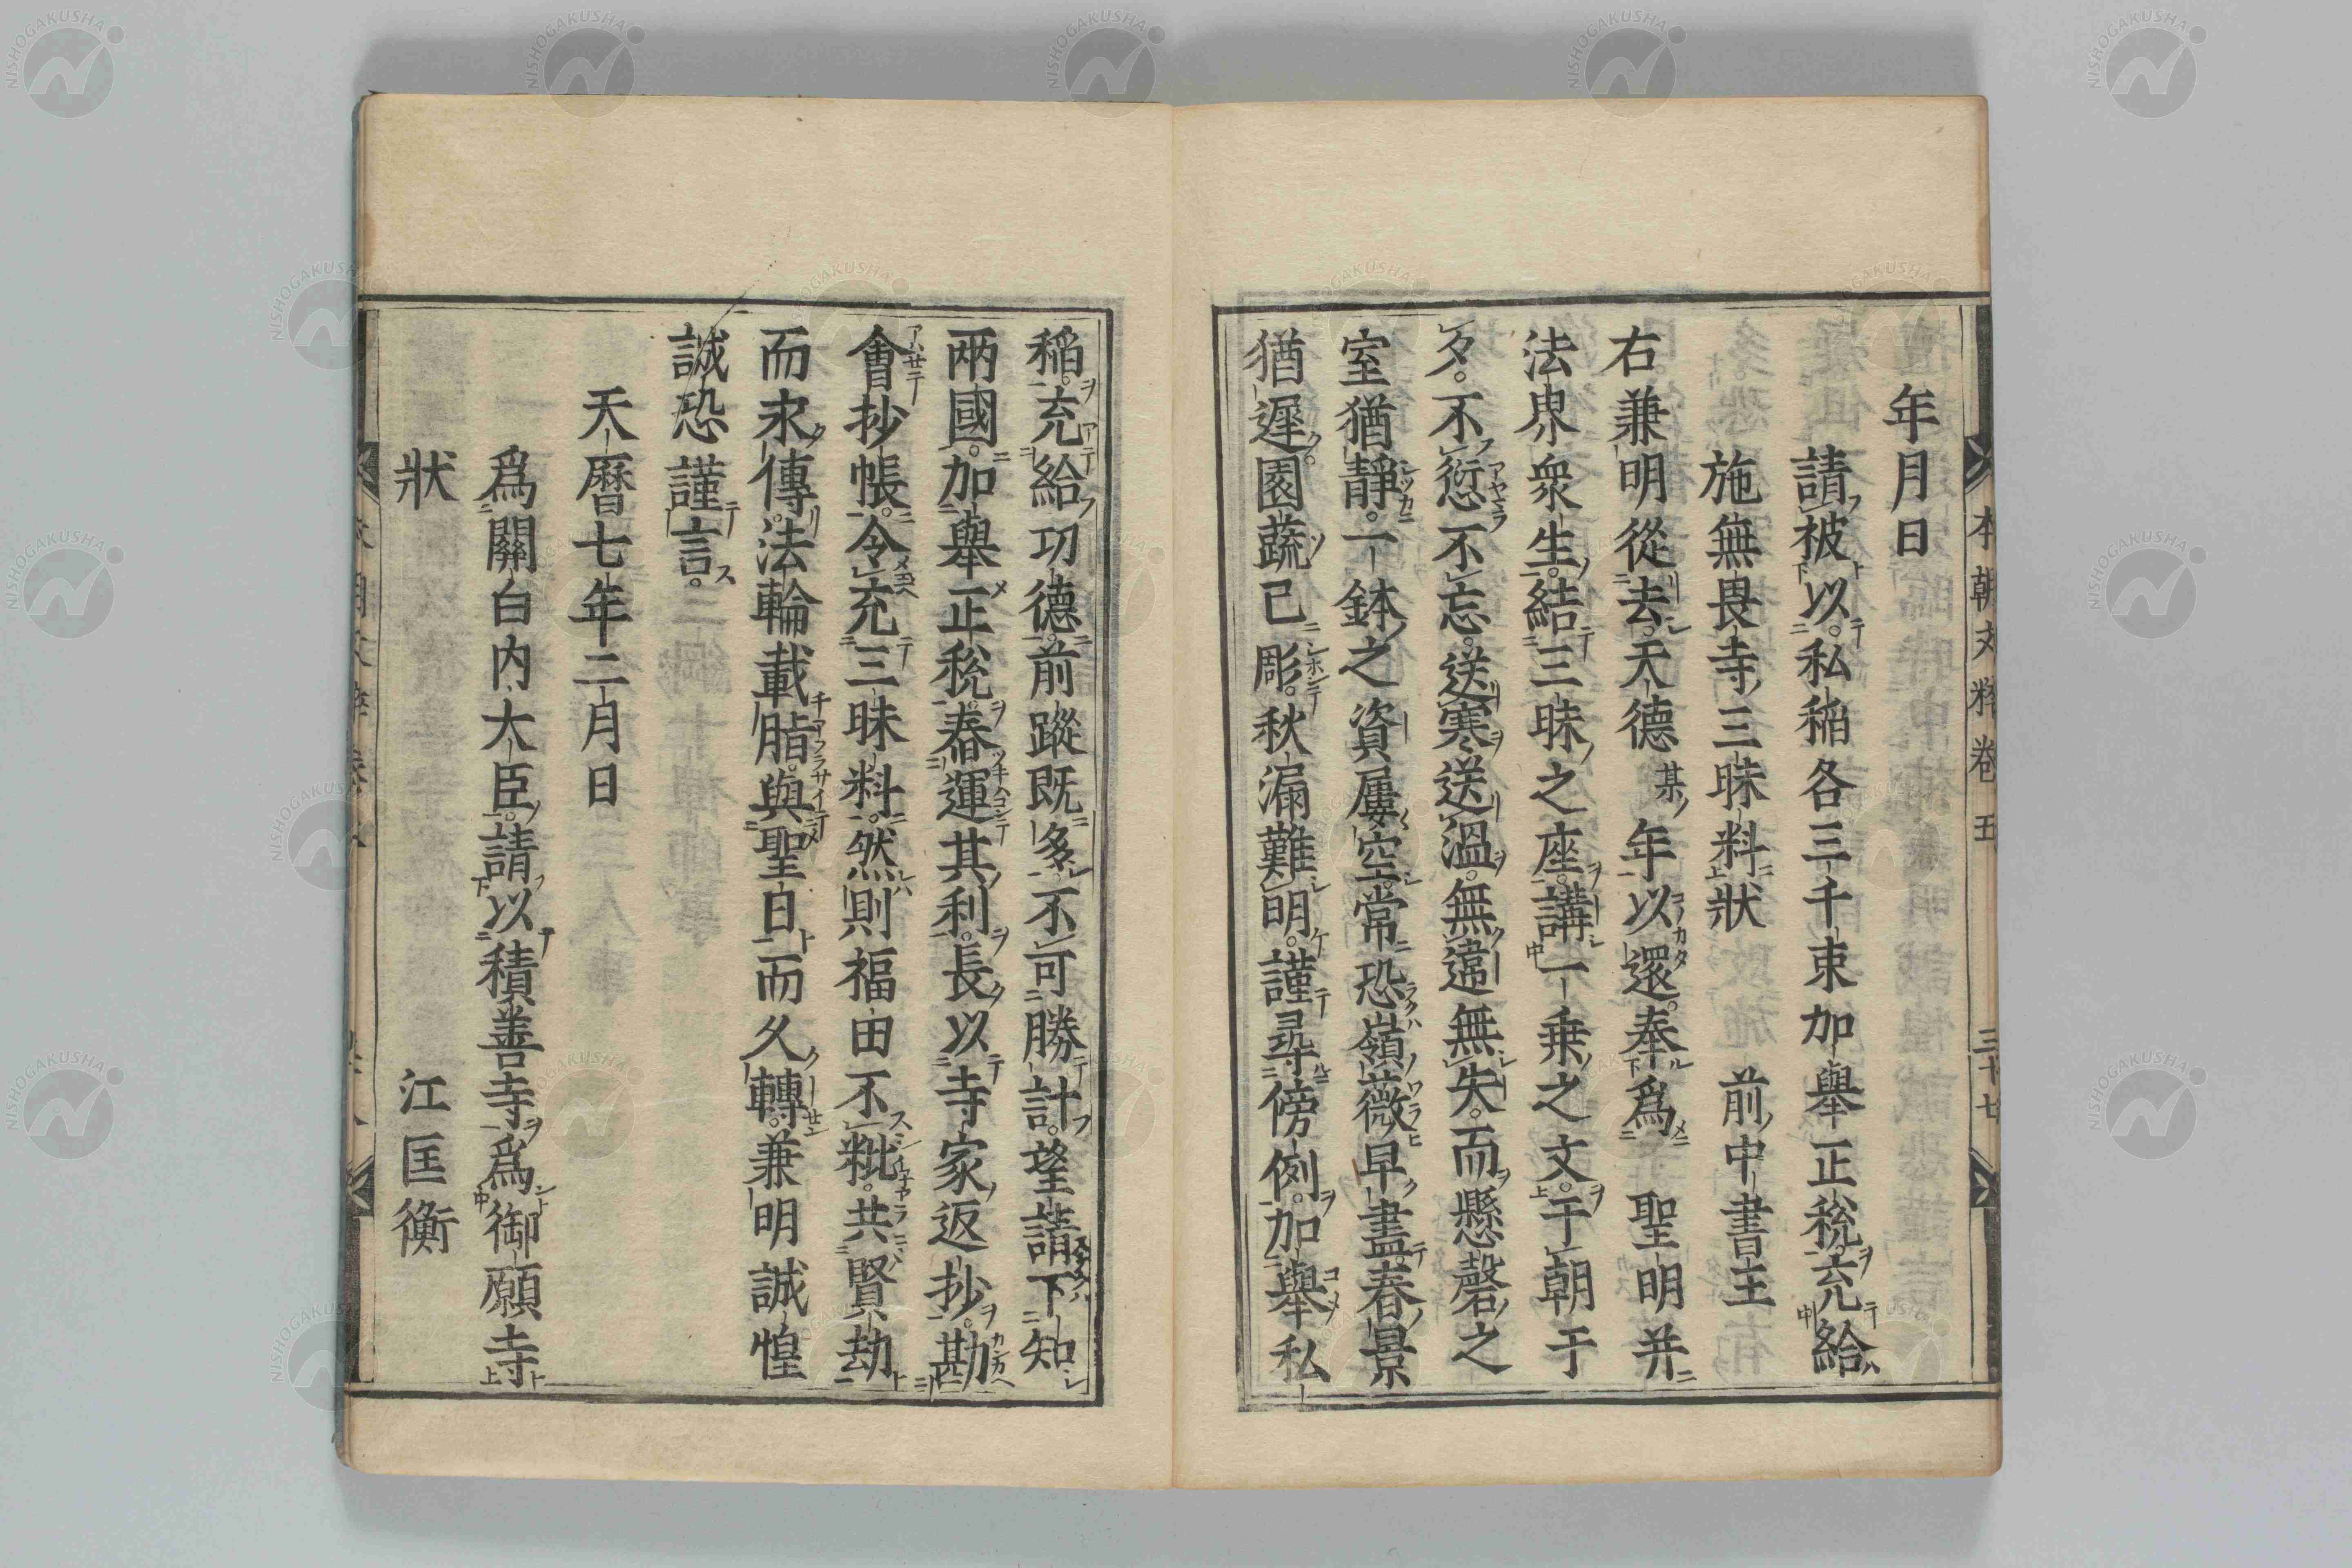 年月日
請被以私稲各三千束加擧正税充給
施無畏寺三昧料狀　前中書王
右兼明從去天德某年以還奉爲　聖明并
法界衆生結三昧之座講一乗之文于朝于
夕不愆不忘送寒送溫無違無失而懸磬之
室猶靜一鉢之資屢空常恐嶺薇早盡春景
猶遲園蔬已彫秋漏難明謹尋傍例加擧私
稲充給功德前蹤既多不可勝計望請下知
兩國加擧正税舂運其利長以寺家返抄勘
會抄帳令充三昧料然則福田不粃共賢劫
而永傳法輪載脂與聖日而久轉兼明誠惶
誠恐謹言
天曆七年二月日
爲關白内大臣請以積善寺爲御願寺
狀　江匡衡
本朝文粹卷五　三十七
NISHOGAKUSHA